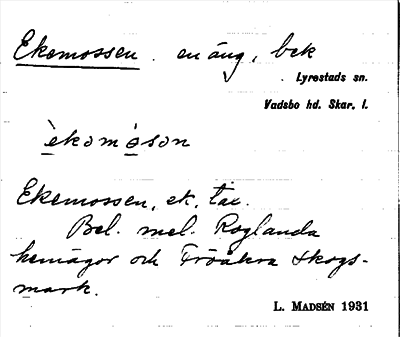 Ekemossen. en äng, bek
Lyrestads sn.
Vadsbo hd. Skar. l.
èkomòson
Ekemossen, ek. tax.
Bel. mel. Roglanda
hemägor och Fröåkra skogs-
mark.
L. MADSÉN 1931